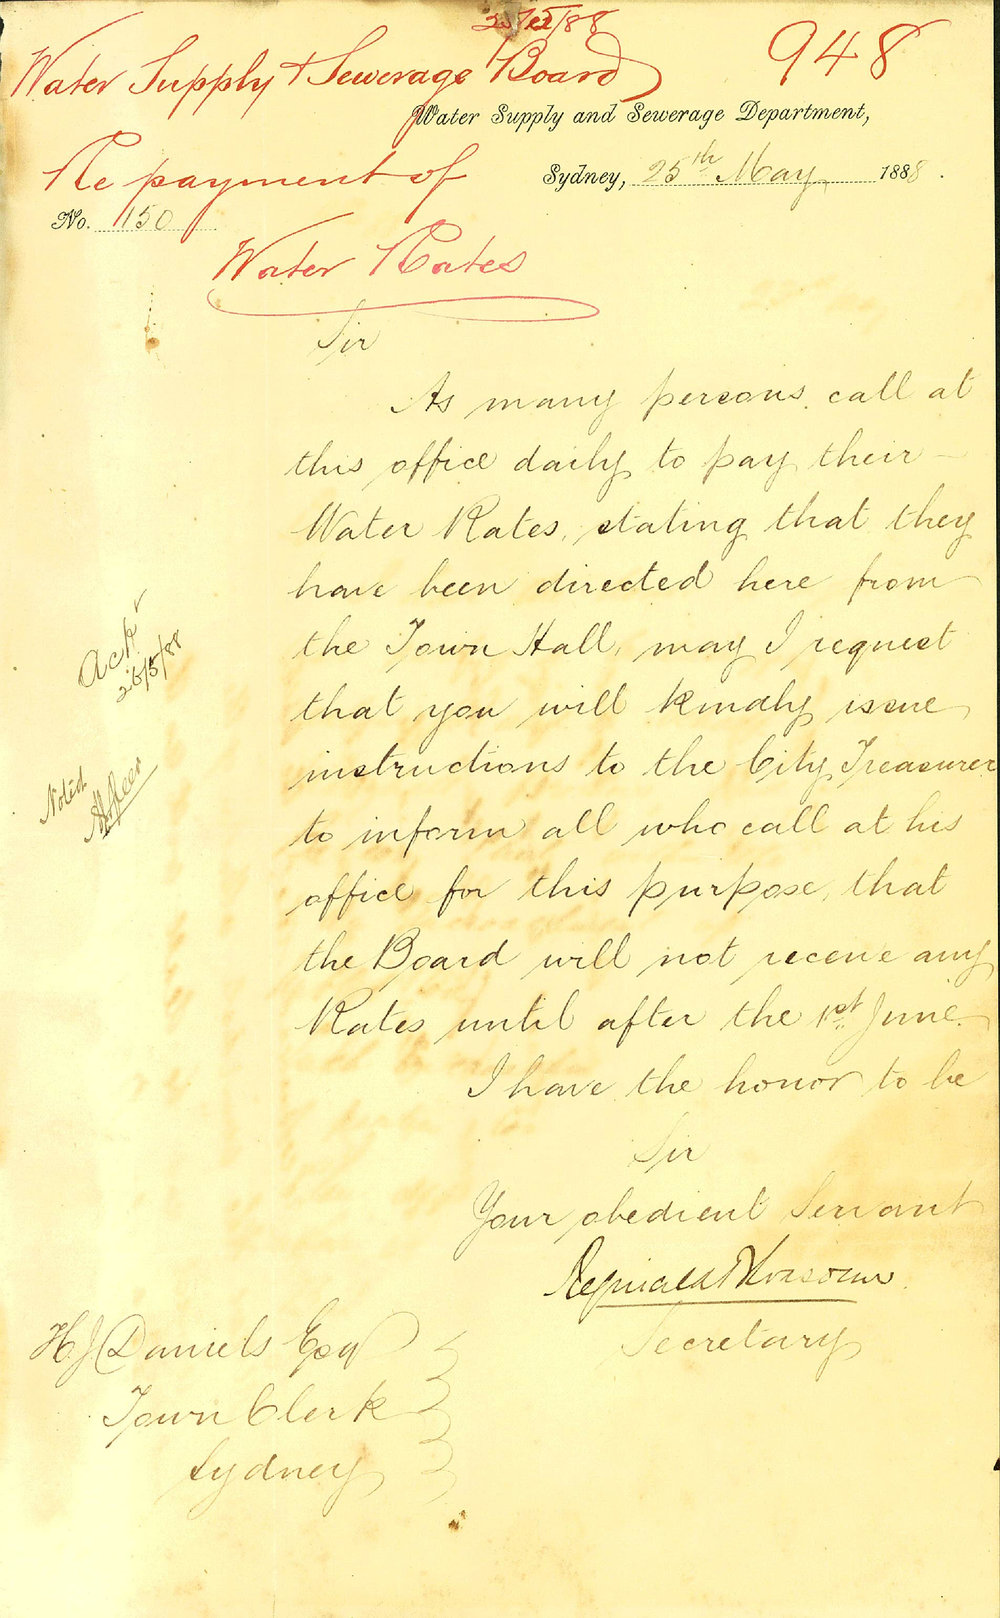 25/5/88
948
Water Supply & Sewerage Board
Water Supply and Sewerage Department,
Re payment of
Sydney, 25th May 1888.
No. 150
Water Rates
Sir
As many persons call at
this office daily to pay their
Water Rates, stating that they
have been directed here from
the Town Hall, may I request
that you will kindly issue
instructions to the City Treasurer
to inform all who call at his
office for this purpose, that
the Board will not receive any
Rates until after the 1st June.
I have the honor to be
Sir
Your obedient Servant
Reginald
Secretary
H J Daniels Esq
Town Clerk
Sydney
Ack
26/5/88
Noted